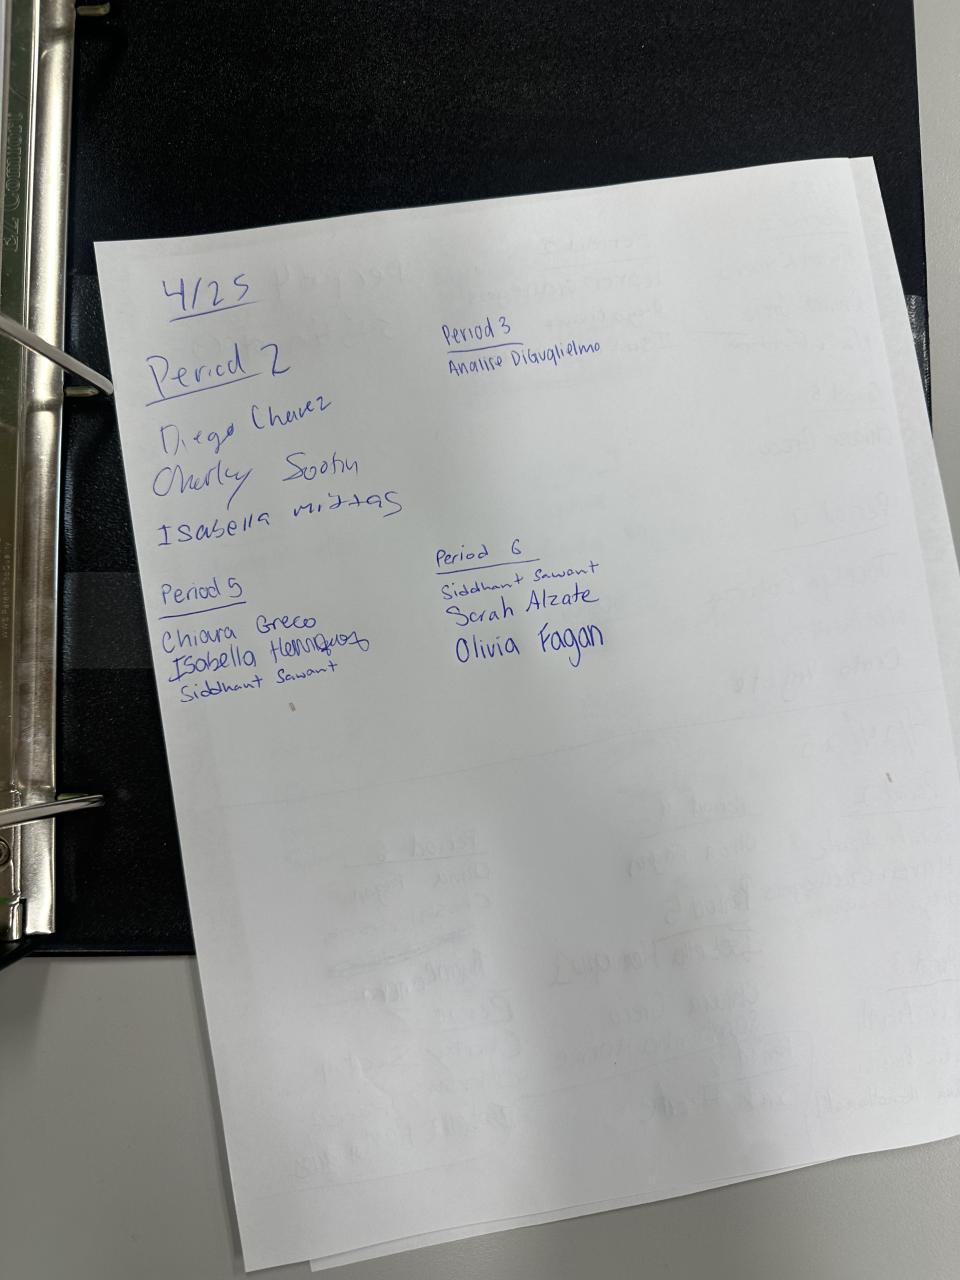 4/25
Period 2
Diego Chavez
Charley
Isabella Mittas
Period 3
Analise DiGuglielmo
Period 5
Chiara Greco
Isabella Henriquez
Siddhant Sawant
Period 6
Siddhant Sawant
Sarah Alzate
Olivia Fagan